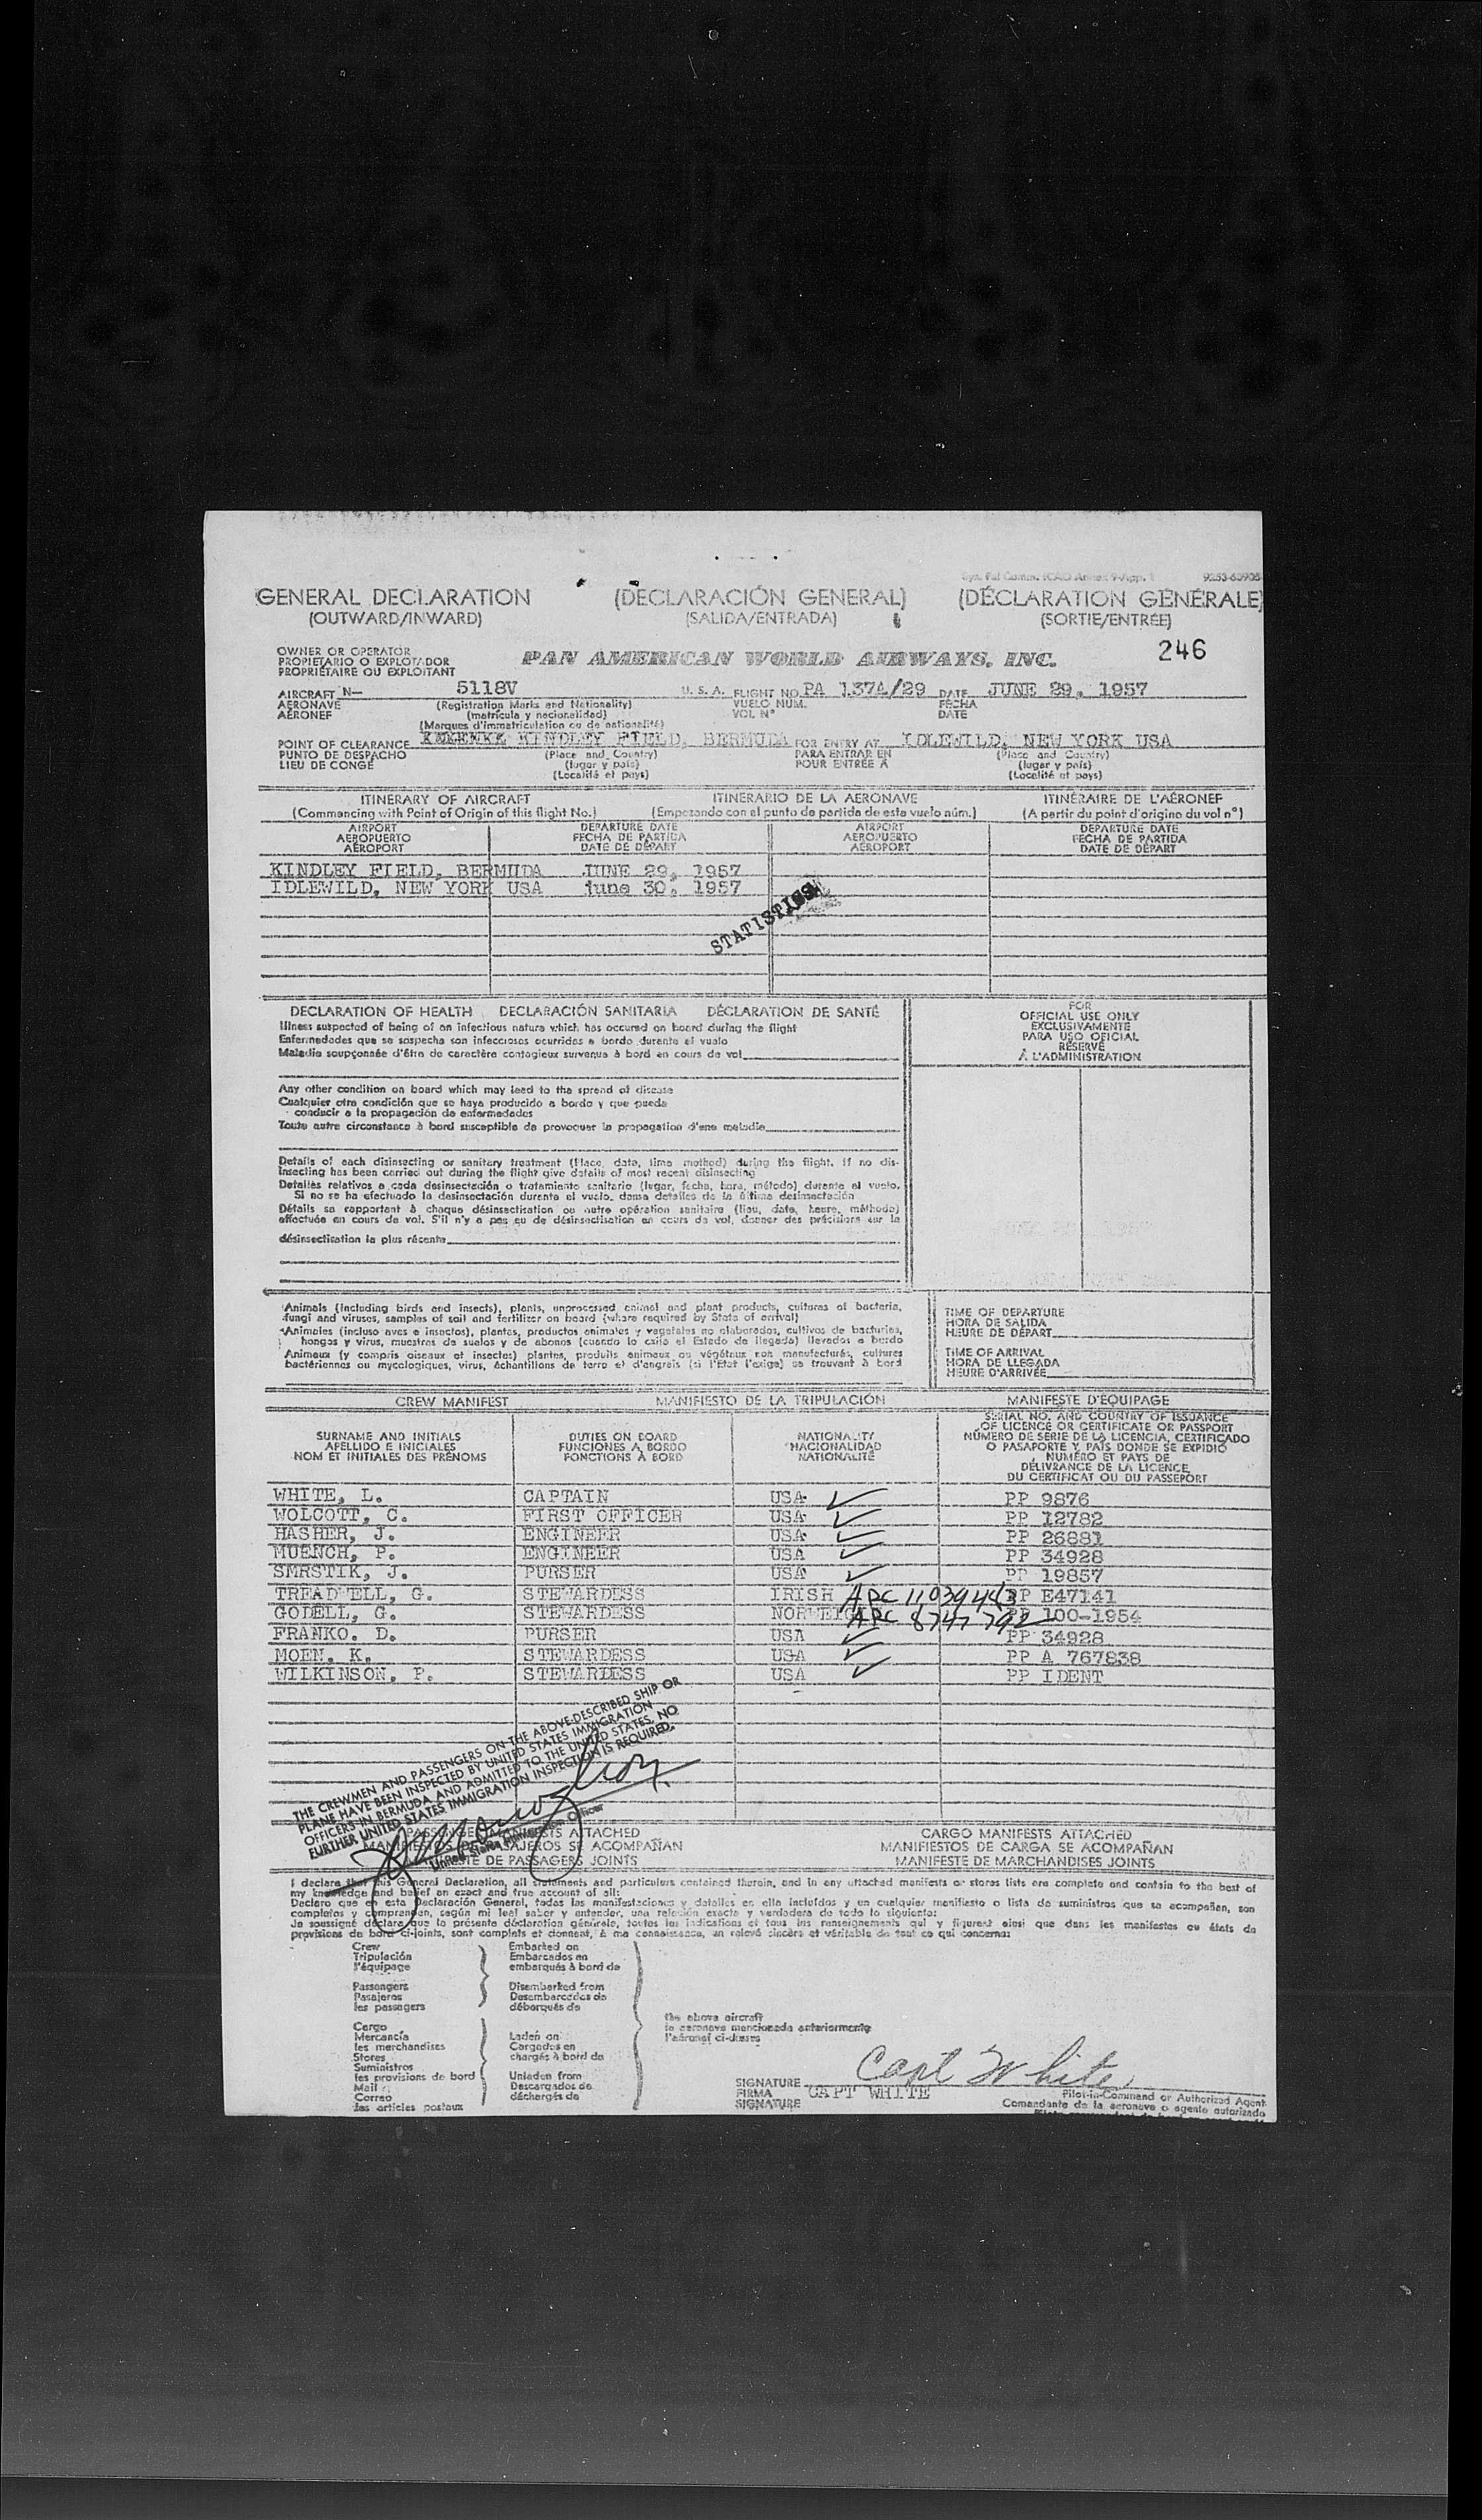 9253-60905
GENERAL DECLARATION (DECLARACIÓN GENERAL) (DÉCLARATION GÉNÉRALE)
(OUTWARD/INWARD) (SALIDA/ENTRADA) (SORTIE/ENTRÉE)
246
OWNER OR OPERATOR
PROPIETARIO O EXPLOTADOR
PROPRIÉTAIRE OU EXPLOITANT
PAN AMERICAN WORLD AIRWAYS, INC.
AIRCRAFT N— 5118V U. S. A. FLIGHT NO. PA 137A/29 DATE JUNE 29, 1957
AERONAVE (Registration Marks and Nationality) VUELO NUM. FECHA
AÉRONEF (matrícula y nacionalidad) VOL Nº DATE
(Marques d'immatriculation ou de nationalité)
POINT OF CLEARANCE KINDLEY FIELD, BERMUDA FOR ENTRY AT IDLEWILD, NEW YORK USA
PUNTO DE DESPACHO (Place and Country) PARA ENTRAR EN (Place and Country)
LIEU DE CONGÉ (lugar y país) POUR ENTRÉE À (lugar y país)
(Localité et pays) (Localité et pays)
ITINERARY OF AIRCRAFT ITINERARIO DE LA AERONAVE ITINÉRAIRE DE L'AÉRONEF
(Commencing with Point of Origin of this flight No.) (Empezando con el punto de partida de este vuelo núm.) (A partir du point d'origine du vol nº)
AIRPORT DEPARTURE DATE AIRPORT DEPARTURE DATE
AEROPUERTO FECHA DE PARTIDA AEROPUERTO FECHA DE PARTIDA
AÉROPORT DATE DE DÉPART AÉROPORT DATE DE DÉPART
KINDLEY FIELD, BERMUDA JUNE 29, 1957
IDLEWILD, NEW YORK USA june 30, 1957
STATISTICS
DECLARATION OF HEALTH DECLARACIÓN SANITARIA DÉCLARATION DE SANTÉ
Illness suspected of being of an infectious nature which has occured on board during the flight
Enfermedades que se sospecha son infecciosas ocurridas a bordo durante el vuelo
Maladie soupçonnée d'être de caractère contagieux survenue à bord en cours de vol
Any other condition on board which may lead to the spread of disease
Cualquier otra condición que se haya producido a bordo y que pueda
conducir a la propagación de enfermedades
Toute autre circonstance à bord susceptible de provoquer la propagation d'une maladie
Details of each disinsecting or sanitary treatment (Place, date, time method) during the flight. If no dis-
insecting has been carried out during the flight give details of most recent disinsecting
Detalles relativos a cada desinsectación o tratamiento sanitario (lugar, fecha, hora, método) durante el vuelo.
Si no se ha efectuado la desinsectación durante el vuelo, dense detalles de la última desinsectación
Détails se rapportant à chaque désinsectisation ou autre opération sanitaire (lieu, date, heure, méthode)
effectuée en cours de vol. S'il n'y a pas eu de désinsectisation en cours de vol, donner des précisions sur la
désinsectisation la plus récente
FOR
OFFICIAL USE ONLY
EXCLUSIVAMENTE
PARA USO OFICIAL
RÉSERVÉ
À L'ADMINISTRATION
Animals (including birds and insects), plants, unprocessed animal and plant products, cultures of bacteria,
fungi and viruses, samples of soil and fertilizer on board (where required by State of arrival)
Animales (incluso aves e insectos), plantas, productos animales y vegetales no elaborados, cultivos de bacterias,
hongos y virus, muestras de suelos y de abonos (cuando lo exija el Estado de llegada) llevados a bordo
Animaux (y compris oiseaux et insectes) plantes, produits animaux ou végétaux non manufacturés, cultures
bactériennes ou mycologiques, virus, échantillons de terre et d'engrais (si l'État l'exige) se trouvant à bord
TIME OF DEPARTURE
HORA DE SALIDA
HEURE DE DÉPART
TIME OF ARRIVAL
HORA DE LLEGADA
HEURE D'ARRIVÉE
CREW MANIFEST MANIFIESTO DE LA TRIPULACIÓN MANIFESTE D'ÉQUIPAGE
SURNAME AND INITIALS
APELLIDO E INICIALES
NOM ET INITIALES DES PRÉNOMS
DUTIES ON BOARD
FUNCIONES A BORDO
FONCTIONS À BORD
NATIONALITY
NACIONALIDAD
NATIONALITÉ
SERIAL NO. AND COUNTRY OF ISSUANCE
OF LICENCE OR CERTIFICATE OR PASSPORT
NÚMERO DE SERIE DE LA LICENCIA, CERTIFICADO
O PASAPORTE Y PAÍS DONDE SE EXPIDIÓ
NUMÉRO ET PAYS DE
DÉLIVRANCE DE LA LICENCE
DU CERTIFICAT OU DU PASSEPORT
WHITE, L. CAPTAIN USA ✓ PP 9876
WOLCOTT, C. FIRST OFFICER USA ✓ PP 12782
HASHER, J. ENGINEER USA ✓ PP 26881
MUENCH, P. ENGINEER USA ✓ PP 34928
SMRSTIK, J. PURSER USA ✓ PP 19857
TREADWELL, G. STEWARDESS IRISH ARC 11039443 PP E47141
GODELL, G. STEWARDESS ARC 8747792 PP 100-1954
FRANKO. D. PURSER USA ✓ PP 34928
MOEN, K. STEWARDESS USA ✓ PP A 767838
WILKINSON, P. STEWARDESS USA ✓ PP IDENT
THE CREWMEN AND PASSENGERS ON THE ABOVE-DESCRIBED SHIP OR
PLANE HAVE BEEN INSPECTED BY UNITED STATES IMMIGRATION
OFFICERS IN BERMUDA AND ADMITTED TO THE UNITED STATES. NO
FURTHER UNITED STATES IMMIGRATION INSPECTION IS REQUIRED.
United States Immigration Officer
ATTACHED CARGO MANIFESTS ATTACHED
MANIFIESTOS DE PASAJEROS SE ACOMPAÑAN MANIFIESTOS DE CARGA SE ACOMPAÑAN
DE PASSAGERS JOINTS MANIFESTE DE MARCHANDISES JOINTS
I declare that this General Declaration, all statements and particulars contained therein, and in any attached manifests or stores lists are complete and contain to the best of
my knowledge and belief an exact and true account of all:
Declaro que en esta Declaración General, todas las manifestaciones y detalles en ella incluídos y en cualquier manifiesto o lista de suministros que se acompañan, son
completos y comprenden, según mi leal saber y entender, una relación exacta y verdadera de todo lo siguiente:
Je soussigné déclare que la présente déclaration générale, toutes les indications et tous les renseignements qui y figurent ainsi que dans les manifestes ou états de
provisions de bord ci-joints, sont complets et donnent, à ma connaissance, un relevé sincère et véritable de tout ce qui concerne:
Crew Embarked on
Tripulación Embarcados en
l'équipage embarqués à bord de
Passengers Disembarked from
Pasajeros Desembarcados de
les passagers débarqués de
Cargo
Mercancía Laden on
les merchandises Cargados en
Stores chargés à bord de
Suministros
les provisions de bord Unladen from
Mail Descargados de
Correo déchargés de
les articles postaux
the above aircraft
la aeronave mencionada anteriormente
l'aéronef ci-dessus
Capt White
SIGNATURE
FIRMA CAPT WHITE
SIGNATURE
Pilot-in-Command or Authorized Agent
Comandante de la aeronave o agente autorizado